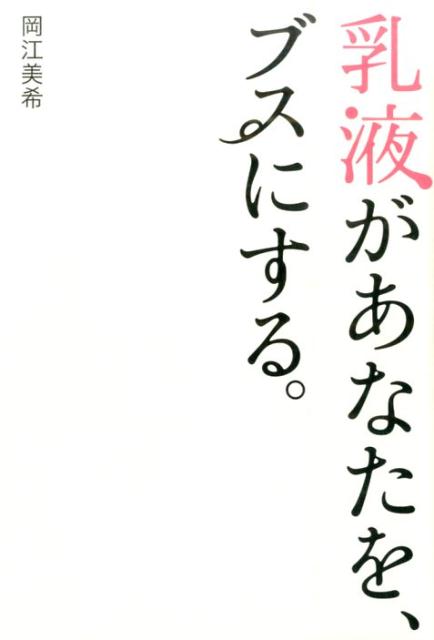 乳液があなたを、
ブスにする。
岡江美希